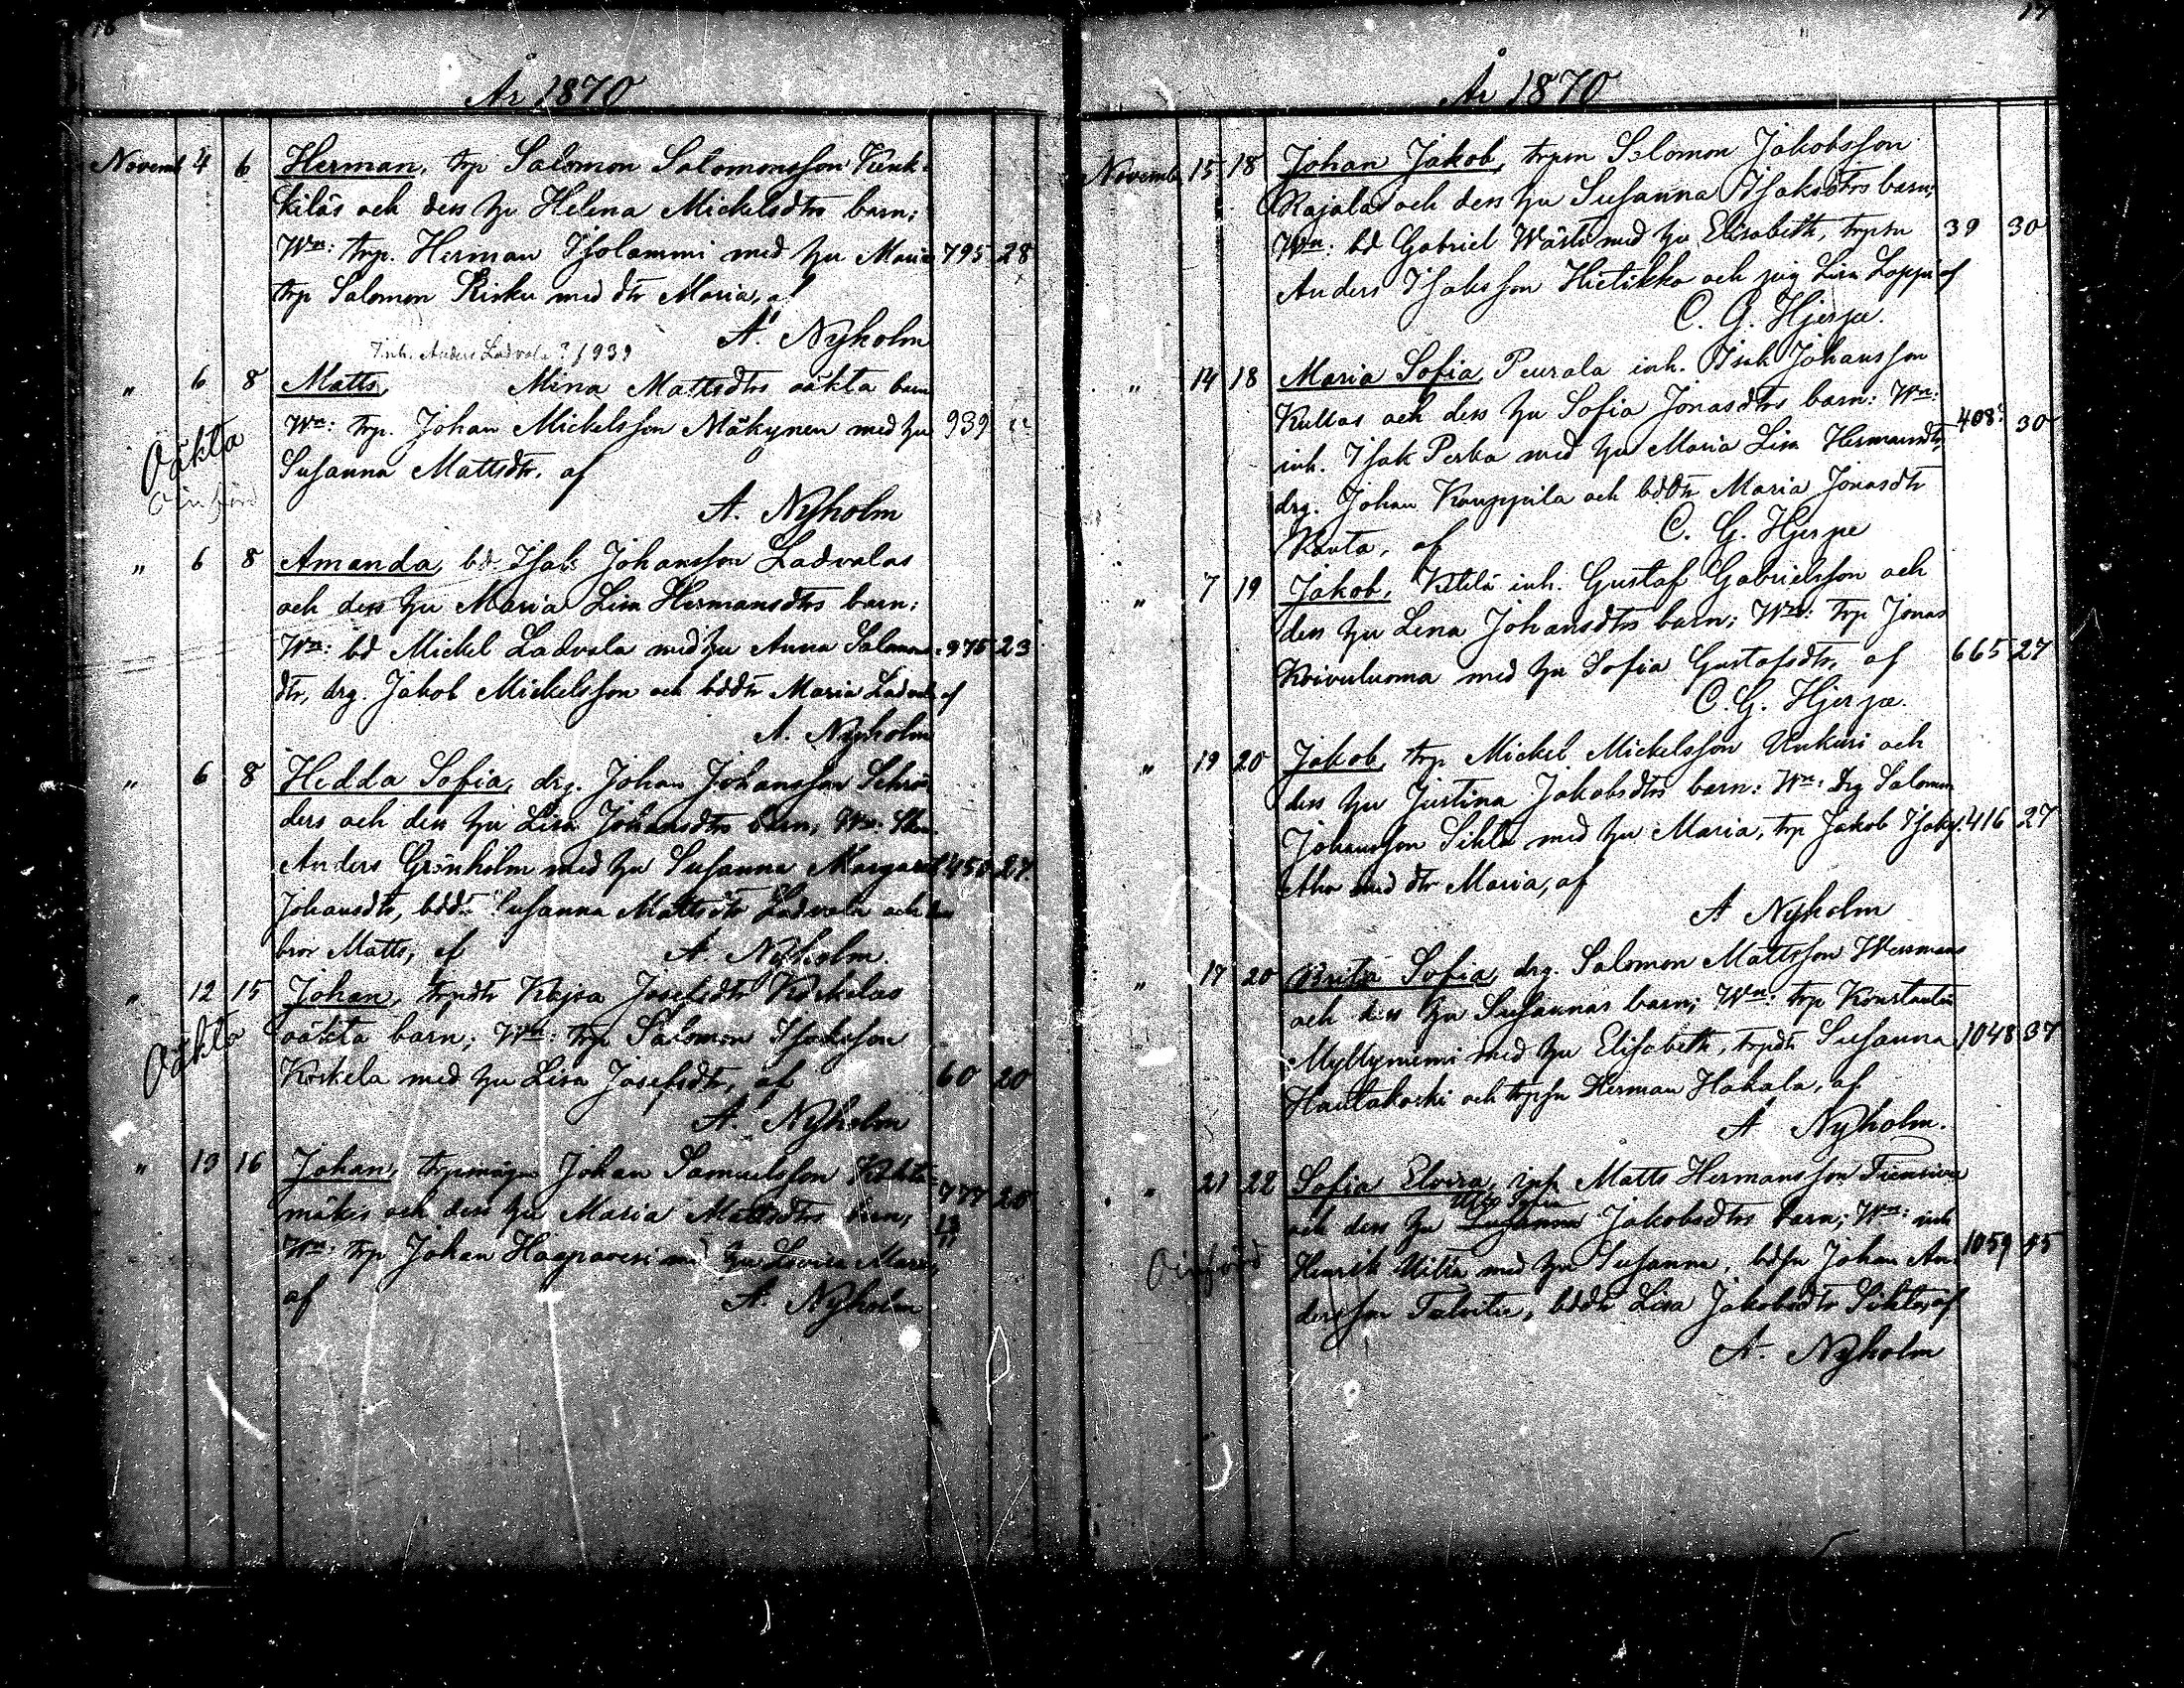 År 1870
Novemb. 4 6 Herman, trp Salomon Salomonsson Kunk-
kiläs och dess hu Helena Mickelsdtrs barn;
Wn: trp. Herman Isolammi med hu Maria 795 28
trp Salomon Risku med dtr Maria, af
A. Nyholm
Inh. Anders Ladvala? /939
" 6 8 Matts, Mina Mattsdtrs oäkta barn
Oäkta Wn: trp. Johan Mickelsson Mäkynen med hu 939
Susanna Mattsdtr. af
A. Nyholm
" 6 8 Amanda, bd. Isak Johansson Ladvalas
och dess hu Maria Lisa Hermansdtrs barn;
Wn: bd Mickel Ladvala med hu Anna Salomons- 975 23
dtr, drg. Jakob Mickelsson och bddtr Maria Ladvala af
A. Nyholm
" 6 8 Hedda Sofia, drg. Johan Johansson Schrö-
ders och dess hu Lisa Johansdtrs barn, Wn:
Anders Grönholm med hu Susanna Margaret 450 27.
Johansdtr, bddtr Susanna Mattsdtr Ladvala och
bror Matts, af A. Nyholm.
" 12 15 Johan, trpdtr Kajsa Josefsdtr Koskelas
Oäkta oäkta barn; Wn: trp Salomon Isaksson
Koskela med hu Lisa Josefsdtr, af 60 20
A. Nyholm
" 13 16 Johan, trpmågen Johan Samuelsson
mäkis och dess hu Maria Mattsdtrs barn; 777 28
Wn: trp Johan Haapavesi med hu Lovisa Maria,
af A. Nyholm
17
År 1870
Novemb. 15 18 Johan Jakob, trpsn Salomon Jakobsson
Rajalas och dess hu Susanna Isaksdtrs barn;
Wn: bd Gabriel Wästi med hu Elisabeth, trpsn 39 30
Anders Isaksson Hietikko och pig Lisa Loppi af
C. G. Hjerpe.
" 14 18 Maria Sofia, Peurala inh. Isak Johansson
Kullas och dess hu Sofia Jonasdtrs barn: Wn: 408 30
inh. Isak Perba med hu Maria Lisa Hermansdtr,
drg. Johan Kauppila och bddtr Maria Jonasdtr
Rauta, af C. G. Hjerpe
" 7 19 Jakob, Ketelä inh. Gustaf Gabrielsson och
dess hu Lena Johansdtrs barn; Wn: trp Jonas
Koivuluoma med hu Sofia Gustafsdtr, af 665 27
C. G. Hjerpe.
" 19 20 Jakob, trp Mickel Mickelsson Unkuri och
dess hu Justina Jakobsdtrs barn: Wn: Drg Salomon
Johansson Sikla med hu Maria, trp Jakob Isaks. 416 27
Aho med dtr Maria, af
A Nyholm
" 17 20 Brita Sofia, drg. Salomon Mattsson Wermans
och dess hu Susannas barn; Wn: trp Konstantin
Myllyniemi med hu Elisabeth, trpdtr Susanna 1048 37
Hautakoski och trpsn Herman Hakala, af
A Nyholm.
" 21 22 Sofia Elvira, inh Matts Hermansson
och dess hu Susanna Jakobsdtrs barn; Wn: inh
Oinförd Henrik Uitta med hu Susanna, bdsn Johan An- 1059
dersson Talvitie, bddtr Lisa Jakobsdtr Sikla, af
A. Nyholm